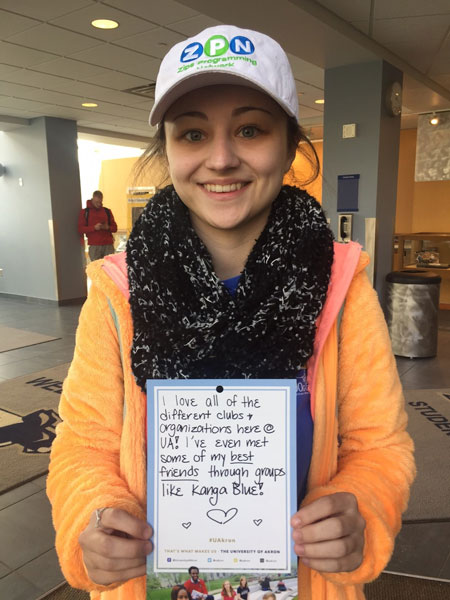 ZPN
Zips Programming
Network
I love all of the
different clubs +
organizations here @
UA! I've even met
some of my best
friends through groups
like Kanga Blue!
#UAkron
THAT'S WHAT MAKES US THE UNIVERSITY OF AKRON